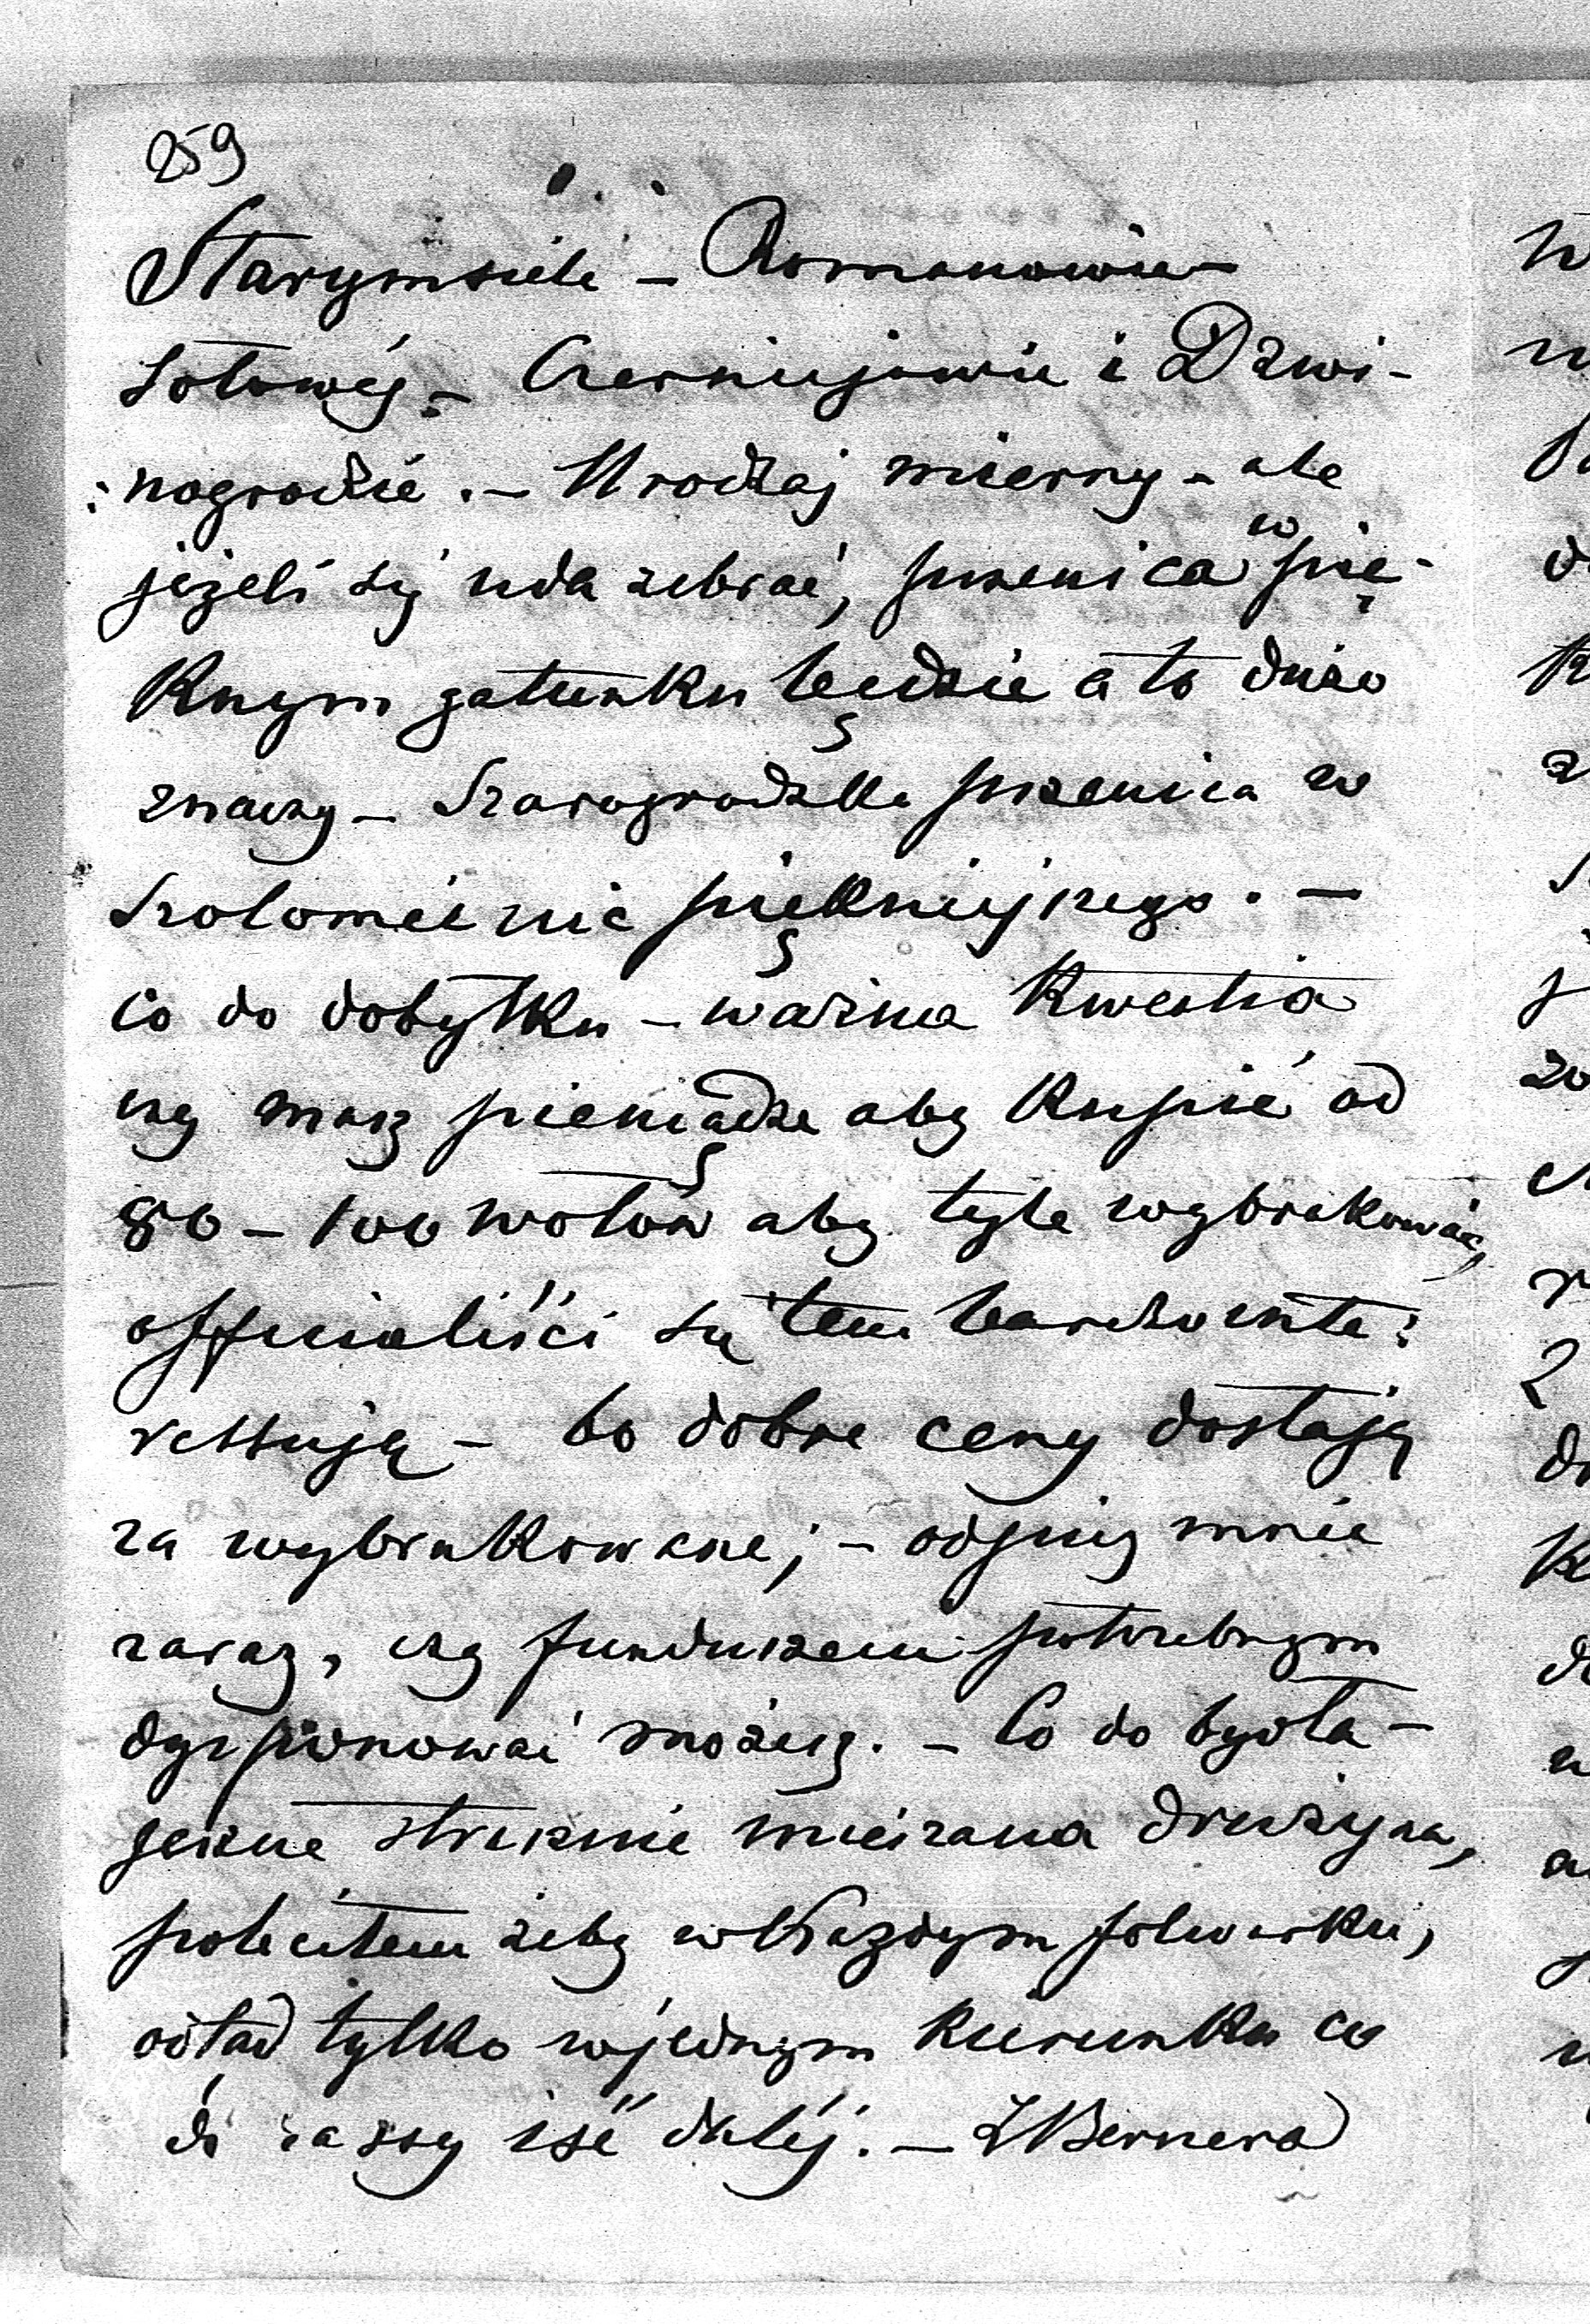 259
Starymsiele – Romanowie –
Lotowéj – Czerniejowie i Dzwi-
nogrodzie. – Urodzaj mierny – ale
jeżeli się uda zebrać, pszenica w pię-
knym gatunku będzie a to dużo
znaczy – Szarogrodzka pszenica w
Szołomei nic piękniejszego. –
Co do dobytku – ważna kwestia
czy masz pieniądze aby kupić od
80 – 100 wołów aby tyle wybrakować,
officialiści są tem bardzo inte-
ressują – bo dobre ceny dostają
za wybrakowane; – odpisz mnie
zaraz, czy funduszem potrzebnym
dysponować możesz. – Co do bydła –
jeszcze strasznie mieszana drużyna,
poleciłem żeby w każdym folwarku,
odtąd tylko w jednym kierunku co
do rassy iść daléj. – Z Bernera